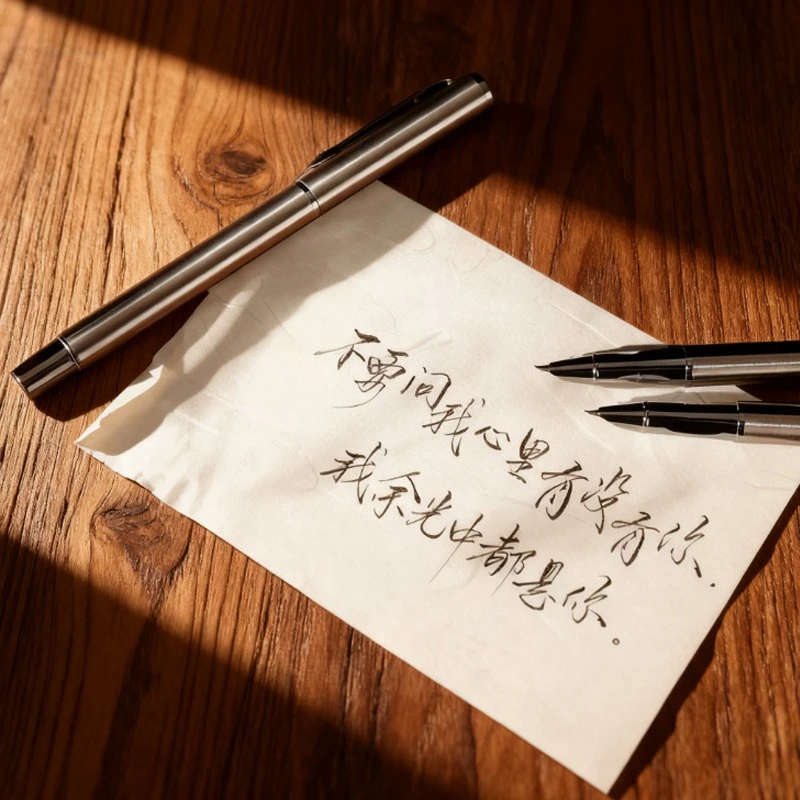 不要问我心里有没有你.
我余光中都是你。